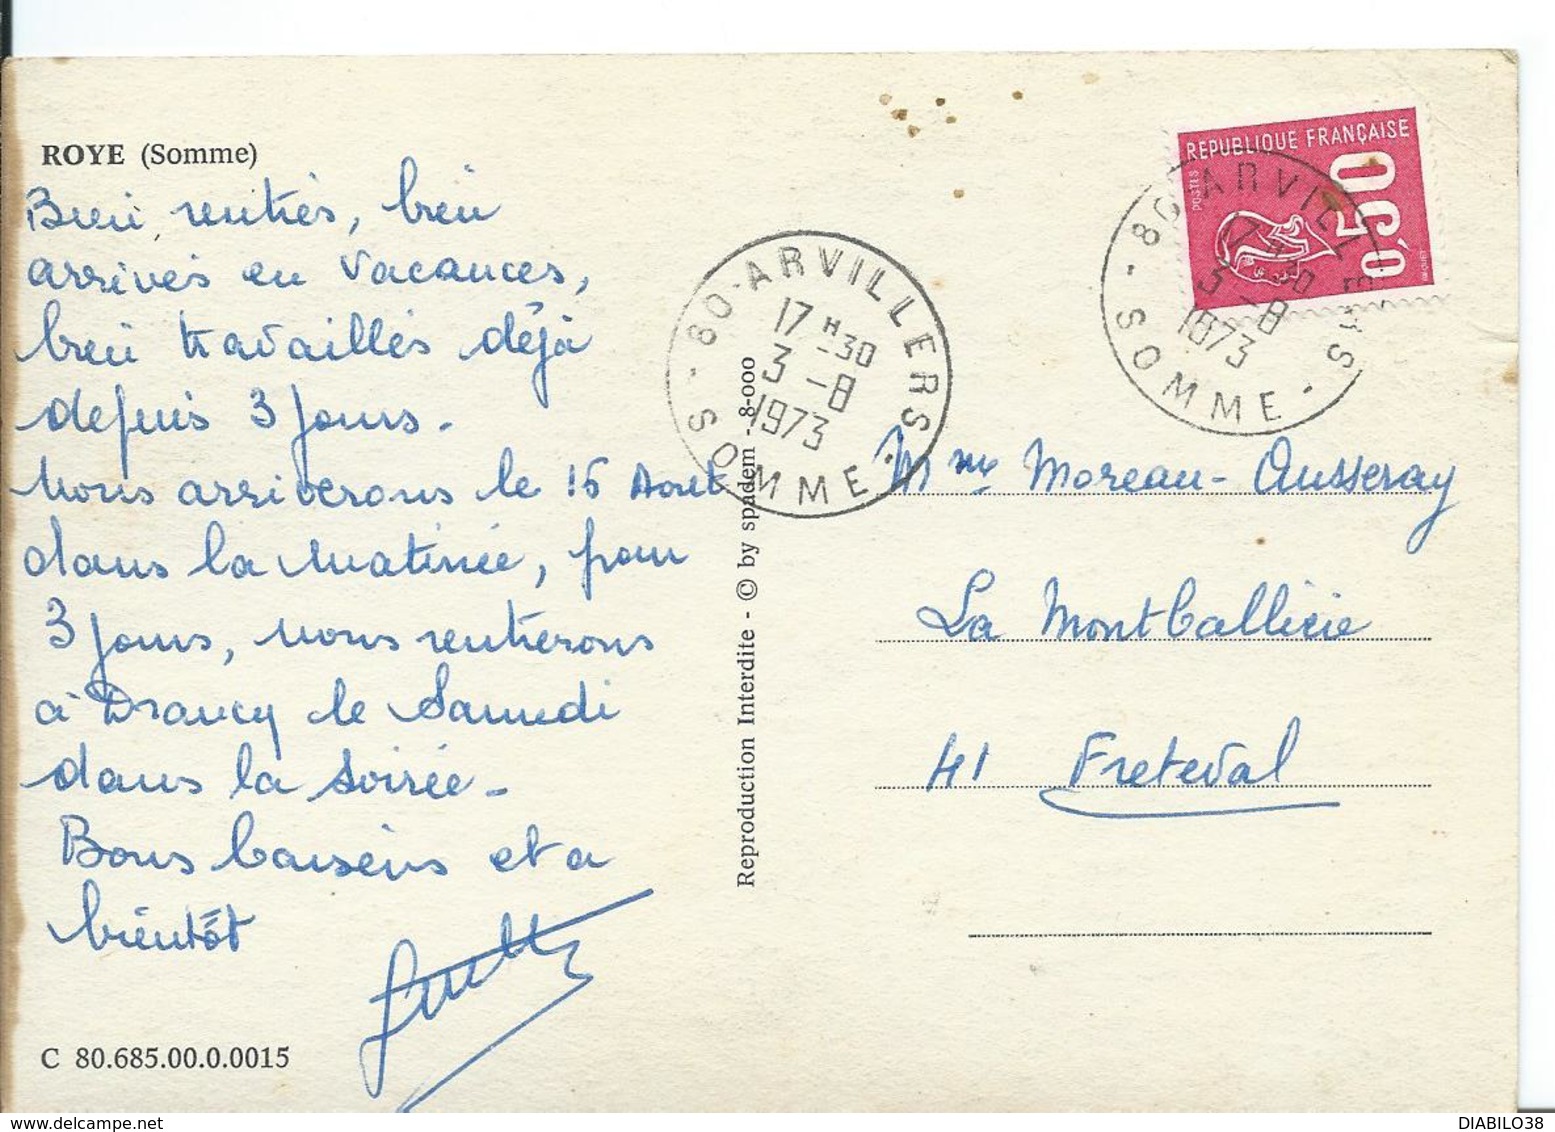 ROYE (Somme)
Bien rentrés, bien
arrivés en vacances,
bien travaillés déjà
depuis 3 jours.
Nous arriverons le 15 Aout
dans la matinée, pour
3 jours, nous rentrerons
à Drancy le Samedi
dans la soirée.
Bons baisers et a
bientôt
C 80.685.00.0.0015
Reproduction Interdite - © by spadem - 8-000
80-ARVILLERS
17 H 30
3 -8
1973
SOMME
REPUBLIQUE FRANÇAISE
POSTES
0,50
80 ARVILLERS
17 H 30
3 -8
1973
SOMME
Mme Moreau-Ausseray
La Montballicie
41 Freteval
DIABILO38